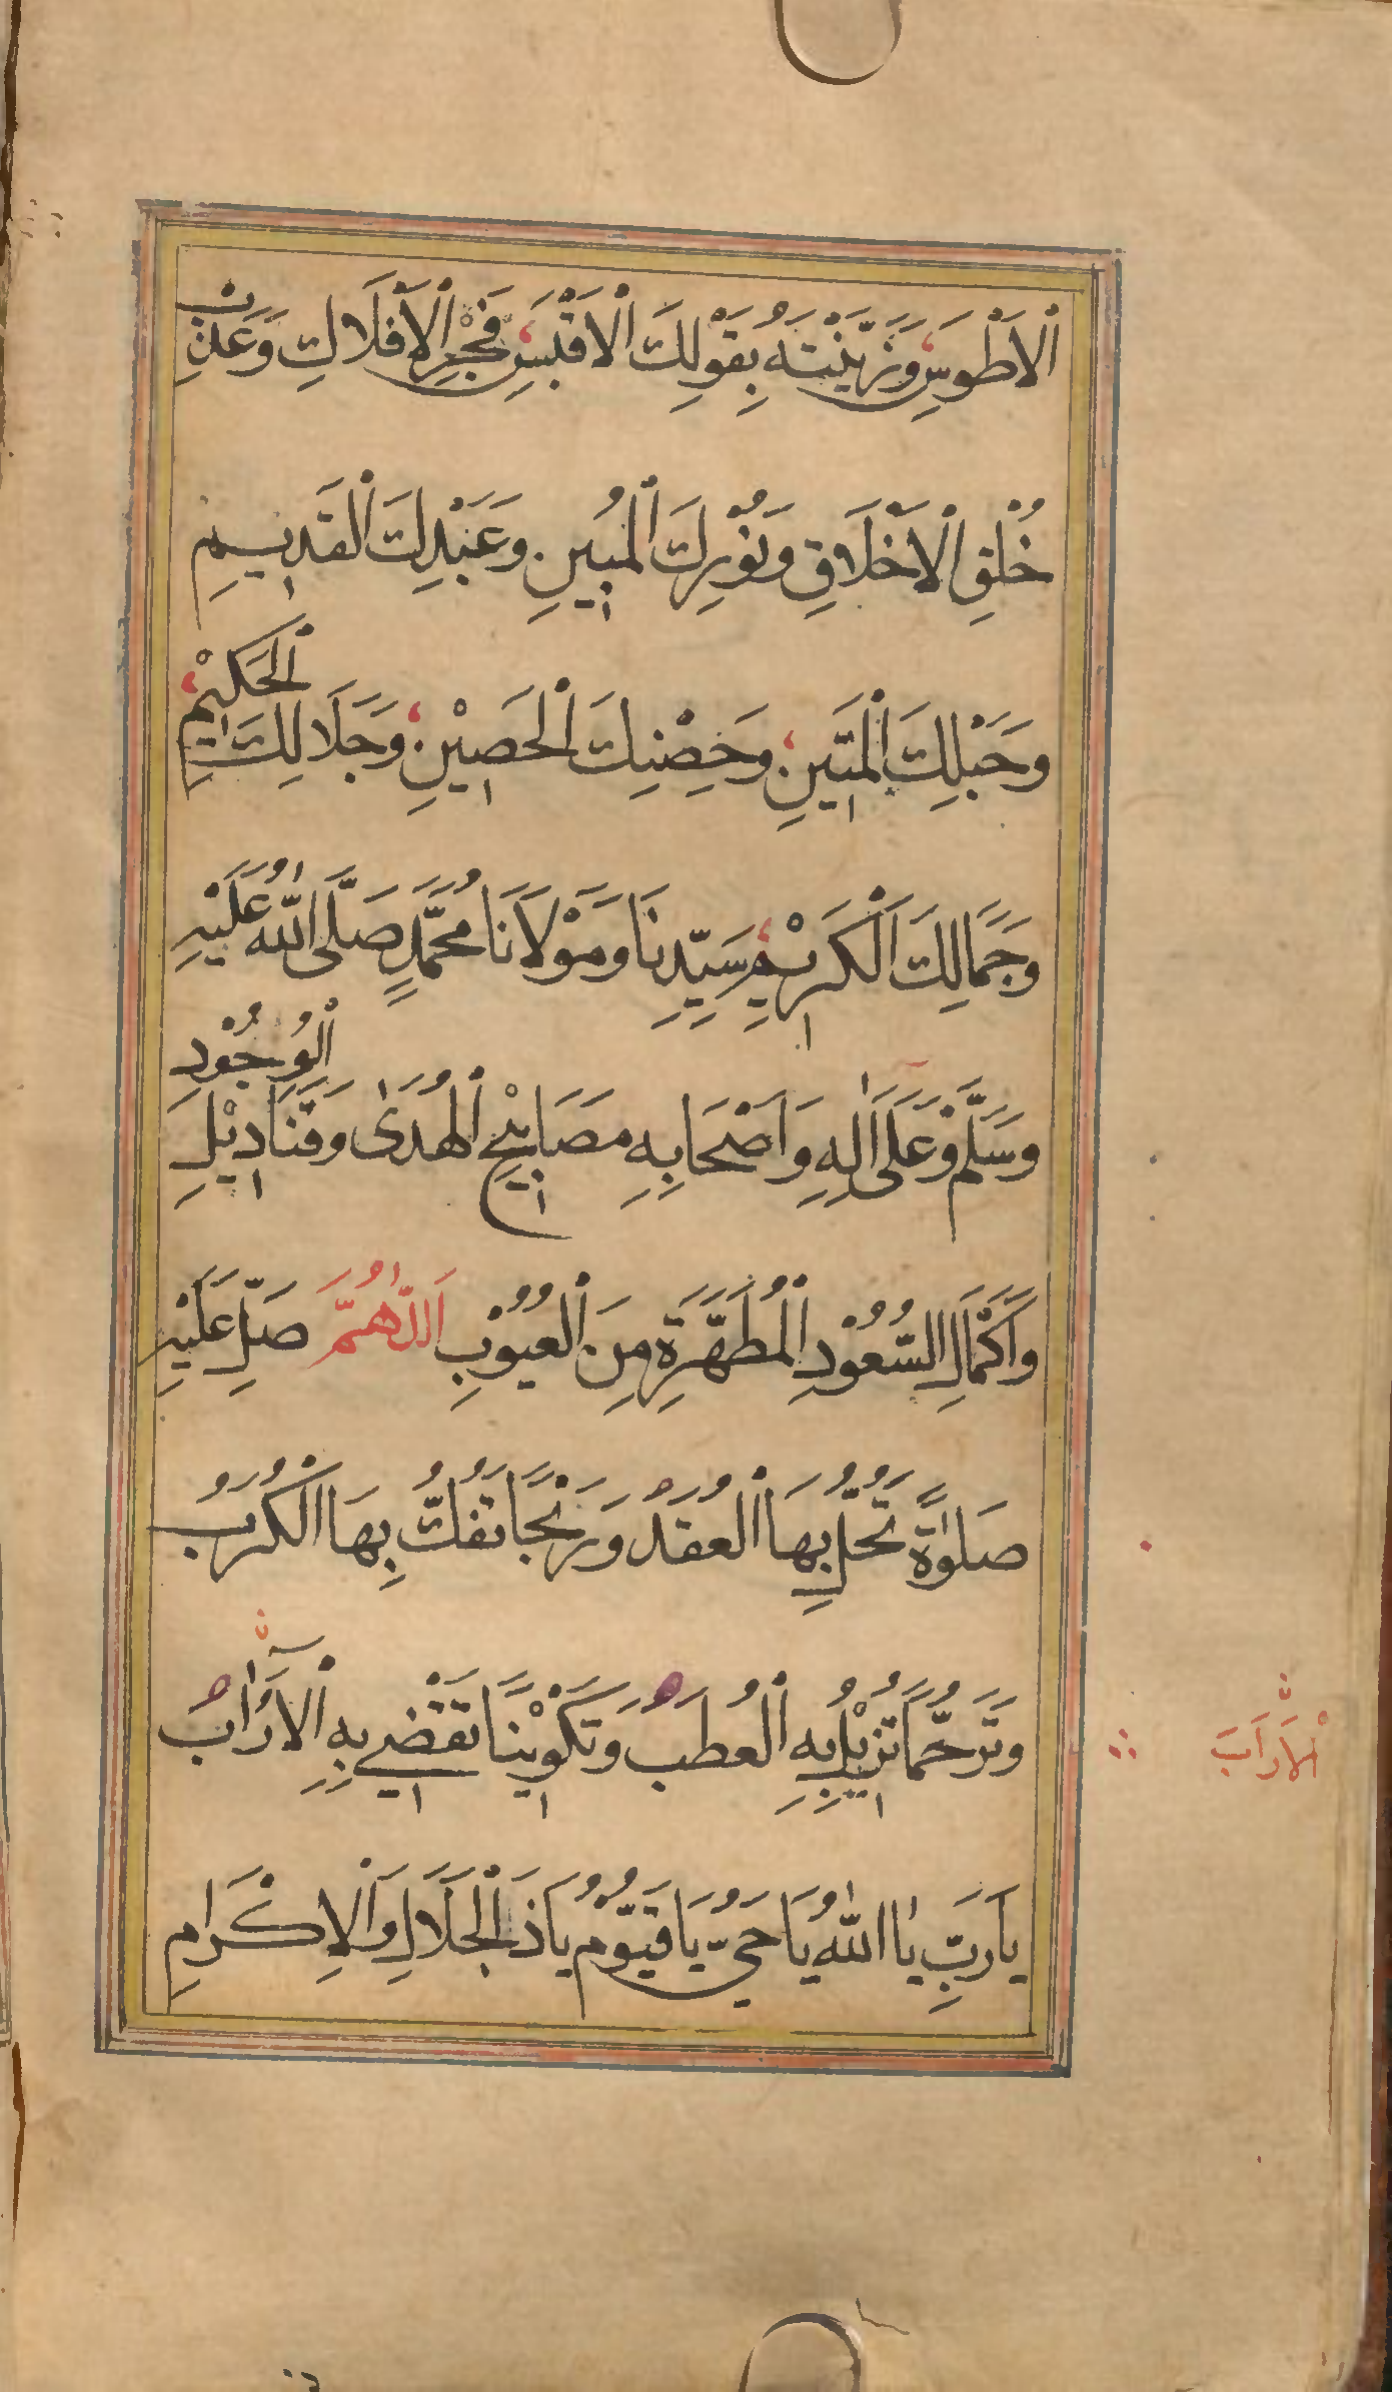 ٱلْاَطْوَسِ وَزَيَّنْتَهُ بِقَوْلِكَ ٱلْاَقْبَسِ فَجْرِ ٱلْاَفْلَاكِ وَعَدْنِ
خُلُقِ ٱلْاَخْلَاقِ وَنُوْرِكَ ٱلْمُبِينِ وَعَبْدِكَ ٱلْقَدِيمِ
وَحَبْلِكَ ٱلْمَتِينِ وَحِصْنِكَ ٱلْحَصِيْنِ وَجَلَالِكَ ٱلْحَكِيْمِ
وَجَمَالِكَ ٱلْكَرِيْمِ سَيِّدِنَا وَمَوْلَانَا مُحَمَّدٍ صَلَّى اللّٰهُ عَلَيْهِ
وَسَلَّمْ وَعَلَى اٰلِهِ وَاَصْحَابِهِ مَصَابِيْحِ ٱلْهُدَىٰ وَقَنَادِيْلِ ٱلْوُجُوْدِ
وَاَكْمَالِ السُّعُوْدِ ٱلْمُطَهَّرَةِ مِنَ ٱلْعُيُوْبِ اَللّٰهُمَّ صَلِّ عَلَيْهِ
صَلٰوةً تُحَلُّ بِهَا ٱلْعُقَدُ وَرَنْجًا تُفَكُّ بِهَا ٱلْكُرَبُ
وَتَرَحُّمًا تُزِيْلُ بِهِ ٱلْعُطَبُ وَتَكْوِيْنًا تَقْضِي بِهِ ٱلْاَرَابُ
ٱلْاَرَابَ
يَارَبِّ يَا اللّٰهُ يَا حَيُّ يَا قَيُّوْمُ يَاذَ ٱلْجَلَالِ وَٱلْاِكْرَامِ